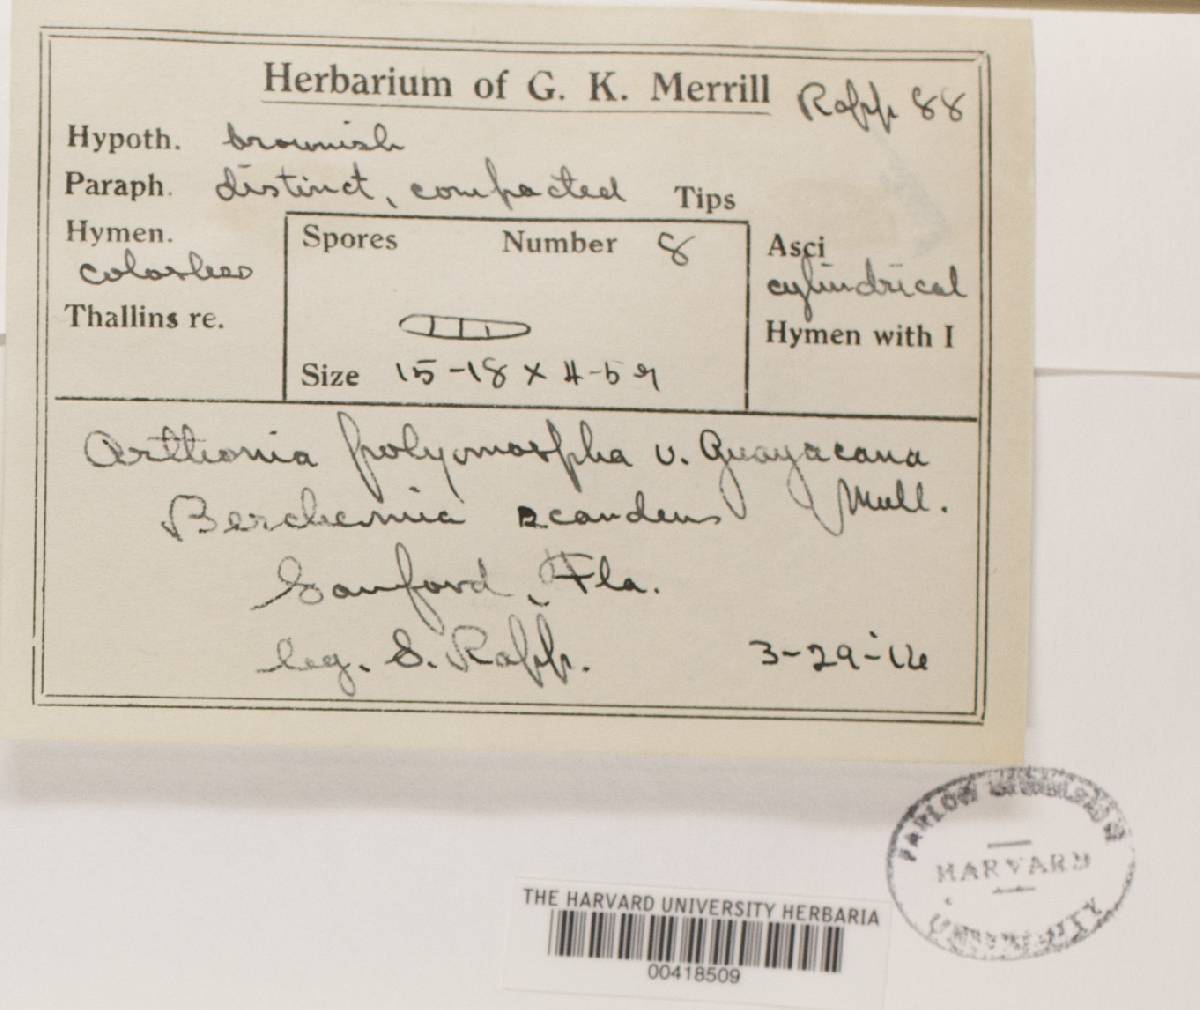 Herbarium of G. K. Merrill Rapp 88
Hypoth. brownish
Paraph. distinct, compacted Tips
Hymen. colorless
Thallins re.
Spores Number 8
Size 15-18 x 4-5 μ
Asci cylindrical
Hymen with I
Arthonia polymorpha v. Guayacana Mull.
Berchemia scandens
Sanford, Fla.
leg. S. Rapp. 3-29-16
FARLOW HERBARIUM
HARVARD
UNIVERSITY
THE HARVARD UNIVERSITY HERBARIA
00418509